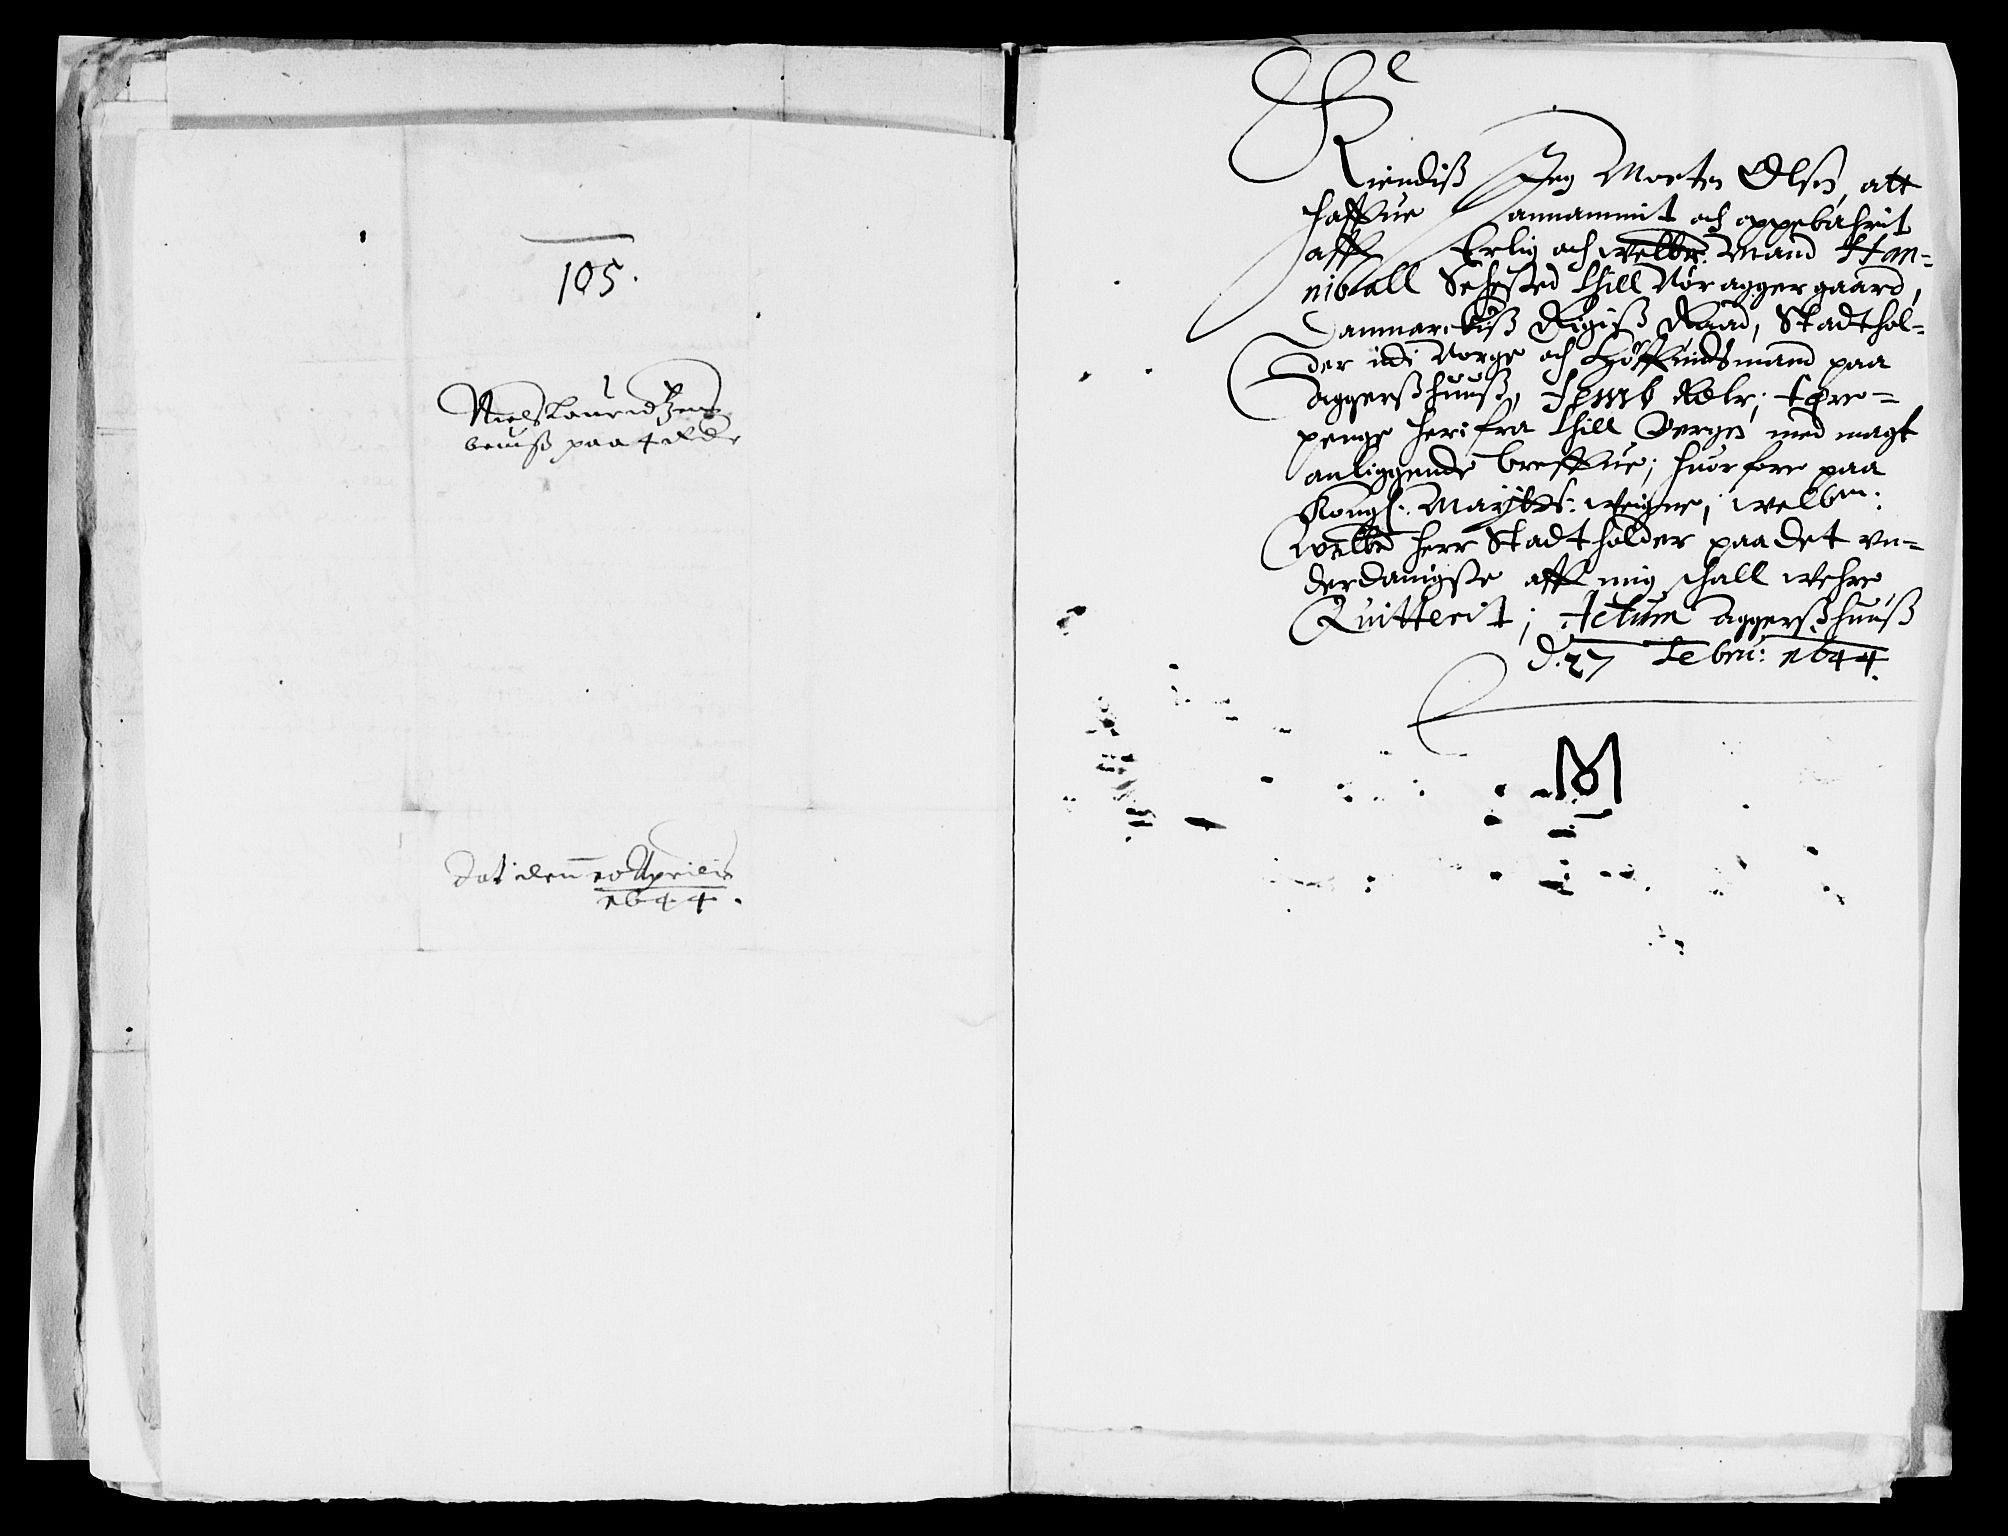 105.
Niels Lauridtzens
beuiß paa 4 Rdr
Dat: den 20 Aprilis
1644.
Kiendiß Jeg Morten Olsen, att
haffue annammit och oppebåhrit
aff Erlig och welbr: Mand Han-
niball Sehested thill Nøraggergaard,
Danmarckiß Rigiß Raad, Stadthol-
der udi Norge och Høffuidsmand paa
Aggerßhuuß, Rdlr; tære-
penge heri fra thill Bergen med magt
anliggende breffue; huorfore paa
Kongl: Maÿtts: weigne, welbm:
welbr herr Stadtholder paa det vn-
derdanigste aff mig schall wehre
Quitterit; Actum Aggerßhuuß
d. 27 Febru: 1644.
M